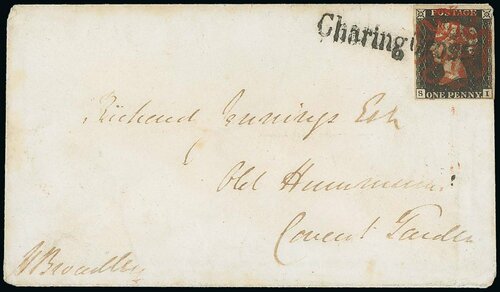 Charing Cross
POSTAGE
S I
ONE PENNY
Richard Jennings Esq
Old Hummums
Covent Garden
WBroadley